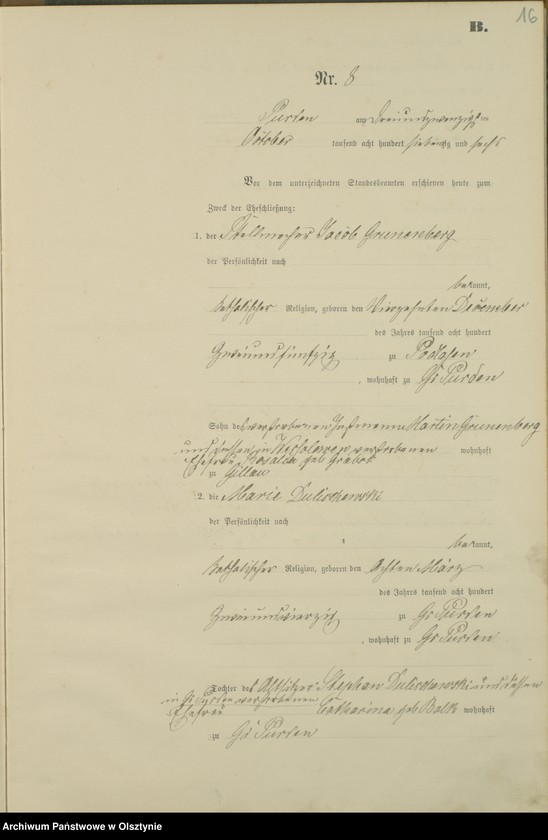 16
B.
Nr. 8
Purden am dreiundzwanzigsten
October tausend acht hundert siebenzig und sechs
Vor dem unterzeichneten Standesbeamten erschienen heute zum
Zweck der Eheschließung:
1. der Stellmacher Jacob Grunenberg
der Persönlichkeit nach
bekannt,
katholischer Religion, geboren den vierzehnten December
des Jahres tausend acht hundert
zweiundfünfzig zu
, wohnhaft zu Gr Purden
Sohn des verstorbenen Martin Grunenberg
und dessen in verstorbenen wohnhaft
Ehefrau Rosalia geb
zu Gillau
2. die Marie Dulischewski
der Persönlichkeit nach
bekannt,
katholischer Religion, geboren den achten März
des Jahres tausend acht hundert
zweiundvierzig zu Gr Purden
, wohnhaft zu Gr Purden
Tochter des Altsitzer Stephan Dulischewski und dessen
in Gr Purden verstorbenen
Ehefrau Catharina geb Balk wohnhaft
zu Gr Purden
Archiwum Państwowe w Olsztynie